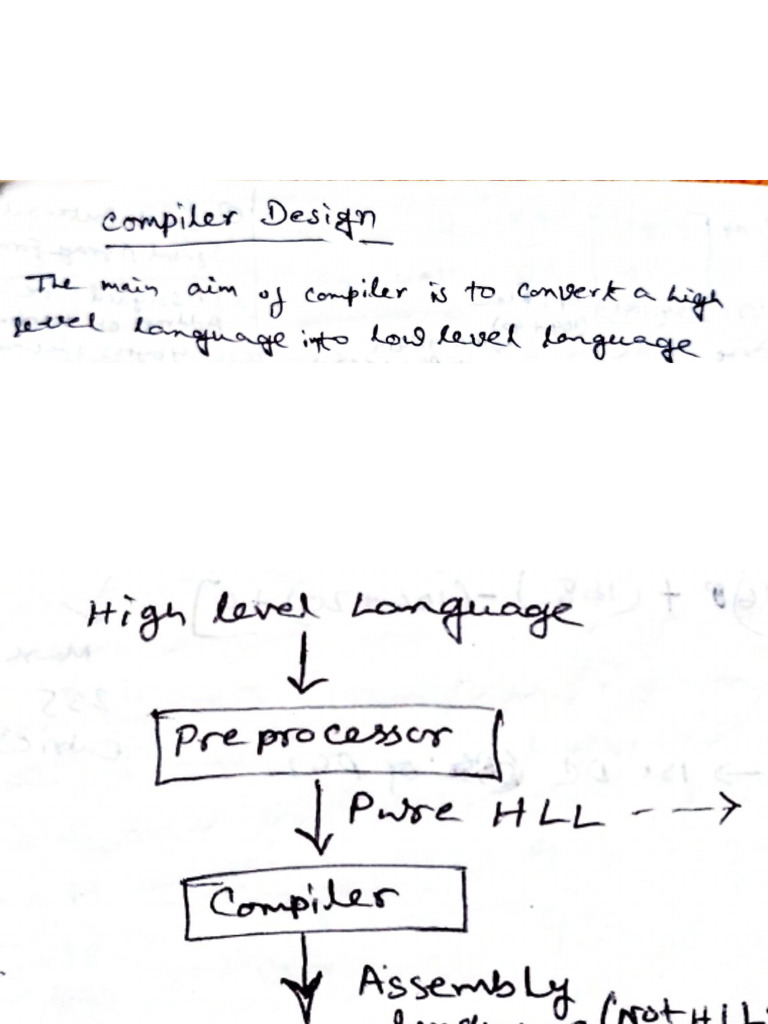 Compiler Design
The main aim of compiler is to convert a high
level language into Low level language
High level Language
Preprocessor
Pure HLL
Compiler
Assembly
(Not HLL